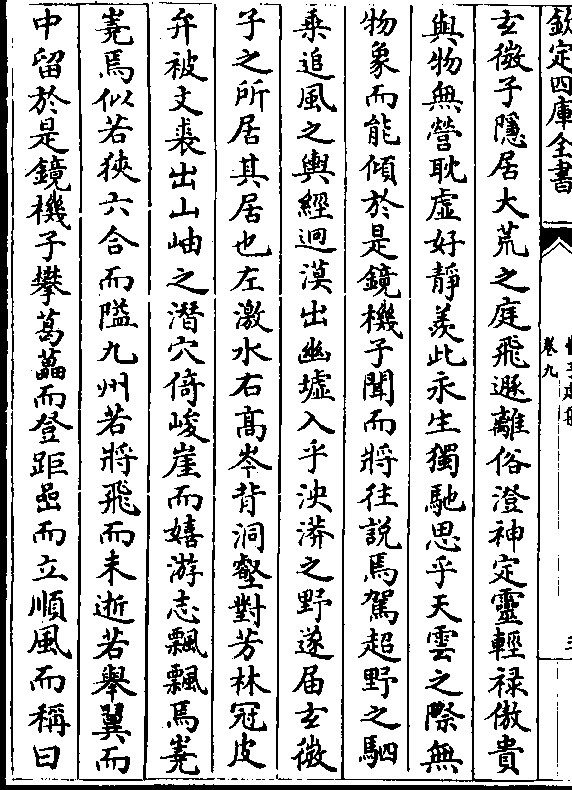 欽定四庫全書
卷九
玄微子隱居大荒之庭飛遯離俗澄神定靈輕禄傲貴
與物無營耽虛好靜羨此永生獨馳思乎天雲之際無
物象而能傾於是鏡機子聞而將往説焉駕超野之駟
乘追風之輿經迥漠出幽墟入乎泱漭之野遂届玄微
子之所居其居也左激水右高岑背洞壑對芳林冠皮
弁被文裘出山岫之潛穴倚峻崖而嬉游志飄飄焉嶤
嶤焉似若狹六合而隘九州若將飛而未逝若舉翼而
中留於是鏡機子攀葛藟而登距喦而立順風而稱曰